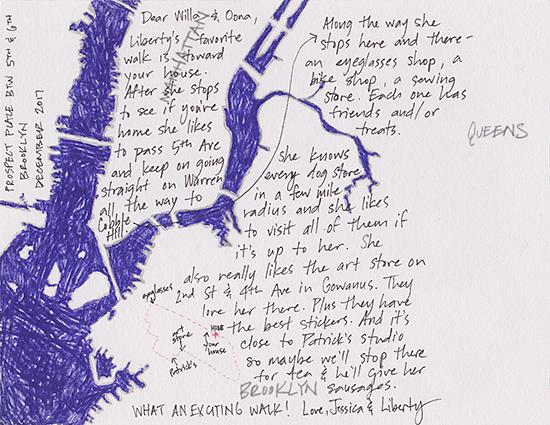 PROSPECT PLACE BTW 5TH & 6TH
BROOKLYN
DECEMBER 2017
Dear Willa & Oona,
Liberty's favorite
walk is toward
your house.
After she stops
to see if you're
home she likes
to pass 5th Ave
and keep on going
straight on Warren
all the way to
Cobble
Hill.
MANHATTAN
Along the way she
stops here and there -
an eyeglasses shop, a
bike shop, a sewing
store. Each one has
friends and/or
treats.
QUEENS
She knows
every dog store
in a few mile
radius and she likes
to visit all of them if
it's up to her. She
also really likes the art store on
2nd St & 4th Ave in Gowanus. They
love her there. Plus they have
the best stickers. And it's
close to Patrick's studio
so maybe we'll stop there
for tea & he'll give her
sausages.
eyeglasses
art
store
Patrick's
your
house
BROOKLYN
WHAT AN EXCITING WALK! Love, Jessica & Liberty